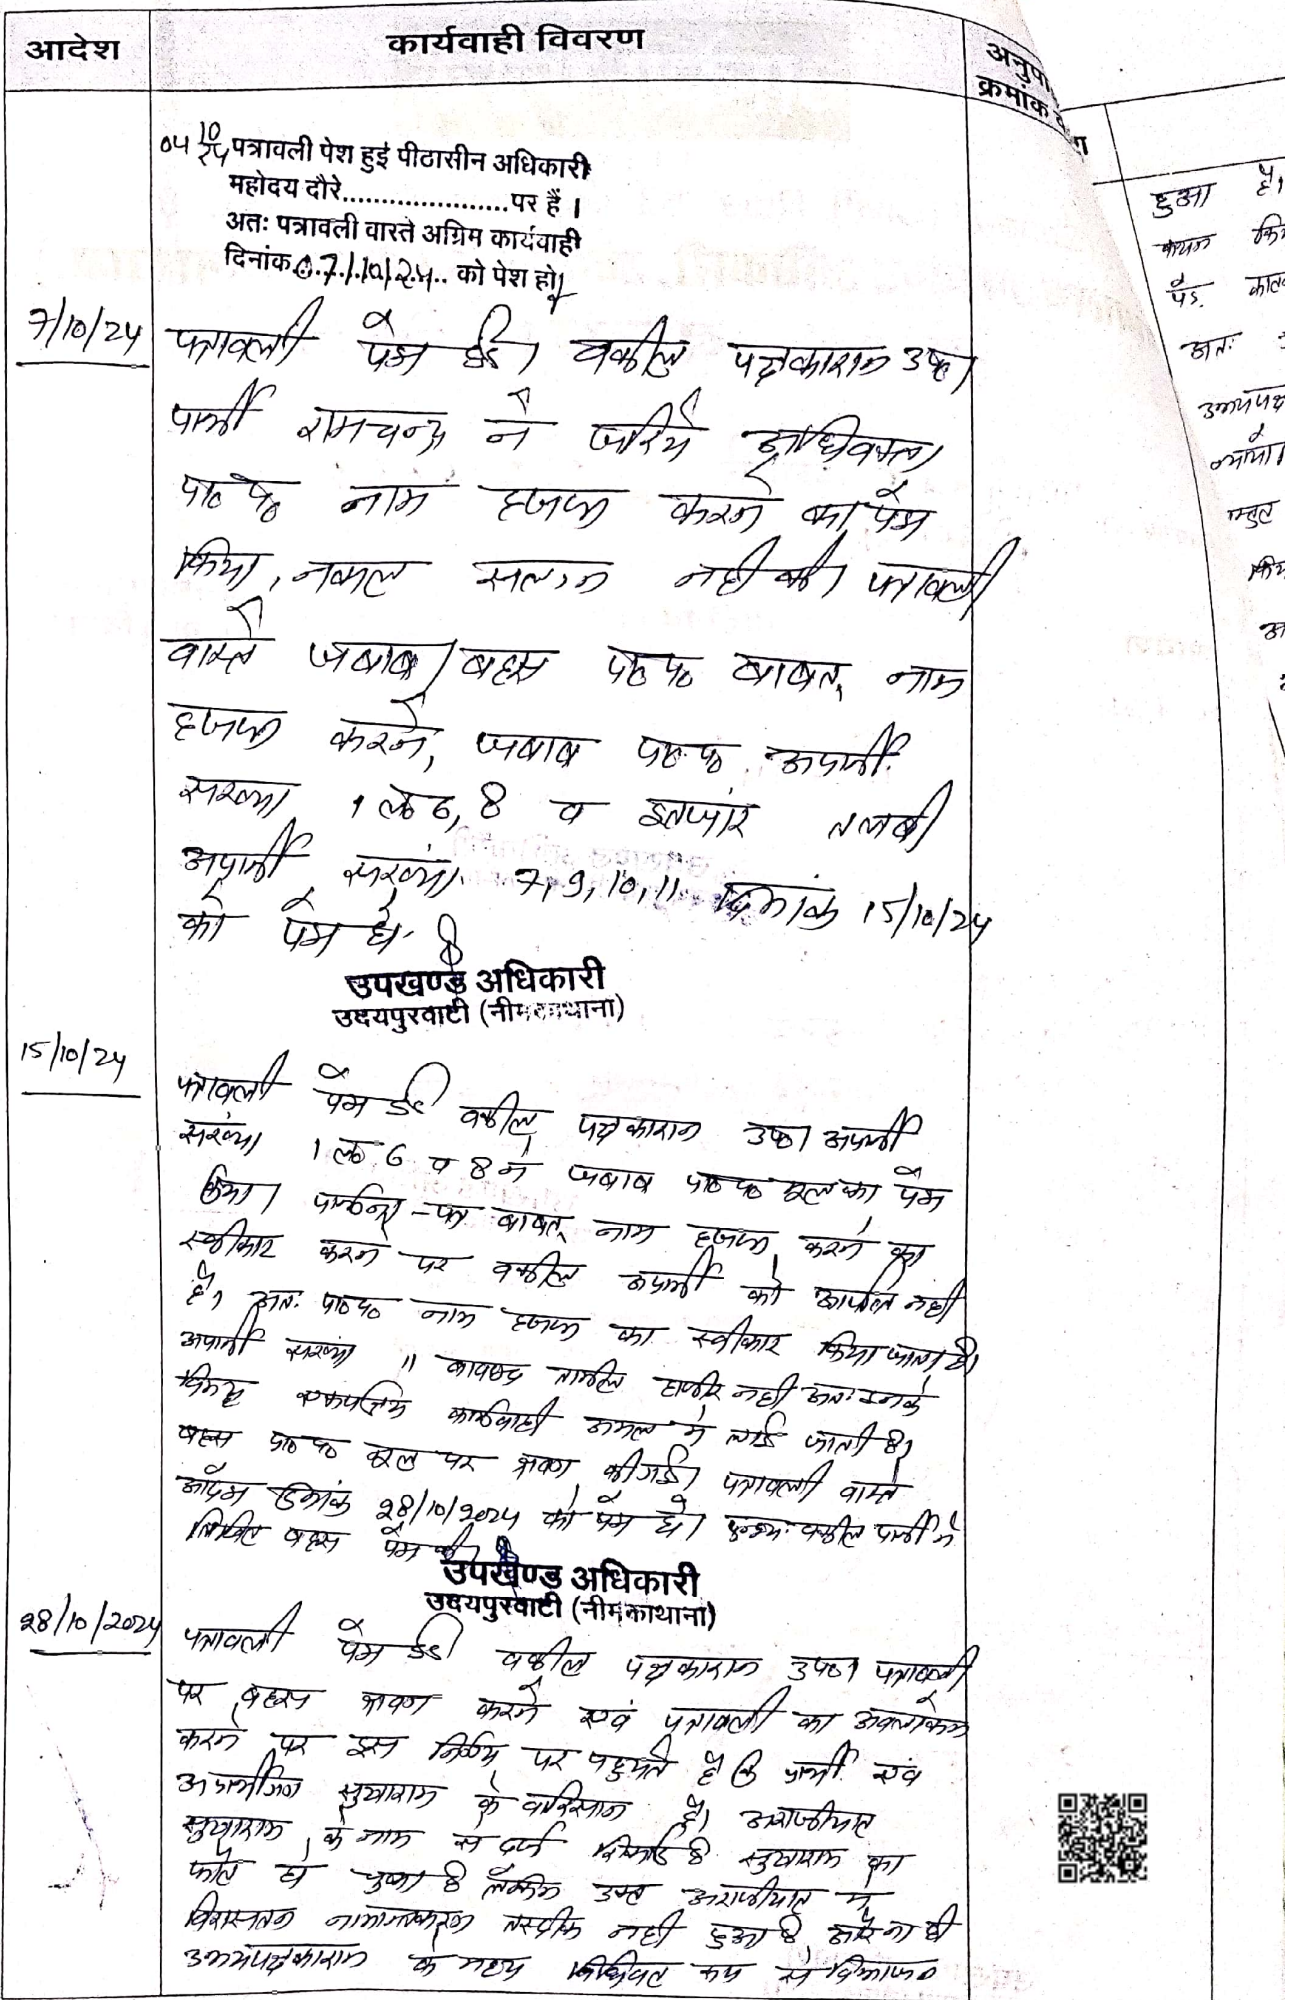 आदेश
कार्यवाही विवरण
अनुपा
क्रमांक
04 10/24 पत्रावली पेश हुई पीठासीन अधिकारी
महोदय दौरे.....................पर हैं ।
अतः पत्रावली वास्ते अग्रिम कार्यवाही
दिनांक 07/10/24.. को पेश हो।
7/10/24
पत्रावली पेश हुई। वकील पक्षकारान उप०।
प्रार्थी रामचन्द्र ने जरिये अधिवक्ता
प्रा० प० नाम हजफ करने का पेश
किया, नकल सलग्न नही की। पत्रावली
वास्ते जबाब/बहस प्रा० प० बाबत् नाम
हजफ करने, जबाब प्रा० प० अप्रार्थी
सख्या 1 ल० 6, 8 व इतजार तलबी
अप्रार्थी सख्या 7, 9, 10, 11 दिनांक 15/10/24
को पेश हो.
उपखण्ड अधिकारी
उदयपुरवाटी (नीमकाथाना)
15/10/24
पत्रावली पेश हुई वकील पक्षकारान उप०। अप्रार्थी
सख्या 1 ल० 6 व 8 ने जबाब प्रा० प० मूल का पेश
किया। प्रार्थना-पत्र बाबत् नाम हजफ करने का
स्वीकार करने पर वकील अप्रार्थी को आपत्ति नही
है, अतः प्रा० प० नाम हजफ का स्वीकार किया जाता है।
अप्रार्थी सख्या 11 बावजूद तामील हाजीर नही अतः उनके
विरूद्ध एकपक्षिय कार्यवाही अमल मे लाई जाती है।
बहस प्रा० प० मूल पर श्रवण की गई। पत्रावली वास्ते
आदेश दिनांक 28/10/2024 को पेश हो। वकील प्रार्थी ने
लिखित बहस पेश की।
उपखण्ड अधिकारी
उदयपुरवाटी (नीमकाथाना)
28/10/2024
पत्रावली पेश हुई। वकील पक्षकारान उप०। पत्रावली
पर बहस श्रवण करने एवं पत्रावली का अवलोकन
करने पर इस निर्णय पर पहुचते है कि प्रार्थी एवं
अप्रार्थीगण सुखाराम के वारिसान है। अराजीयात
सुखाराम के नाम से दर्ज रिकार्ड है सुखाराम का
फोत हो चुका है लेकिन उक्त अराजीयात मे
विरासतन नामान्तकरण तस्दीक नही हुआ है, और ना ही
उभयपक्षकारान के मध्य विधिवत रूप से विभाजन
हुआ है।
कथन
अतः
उभयपक्ष